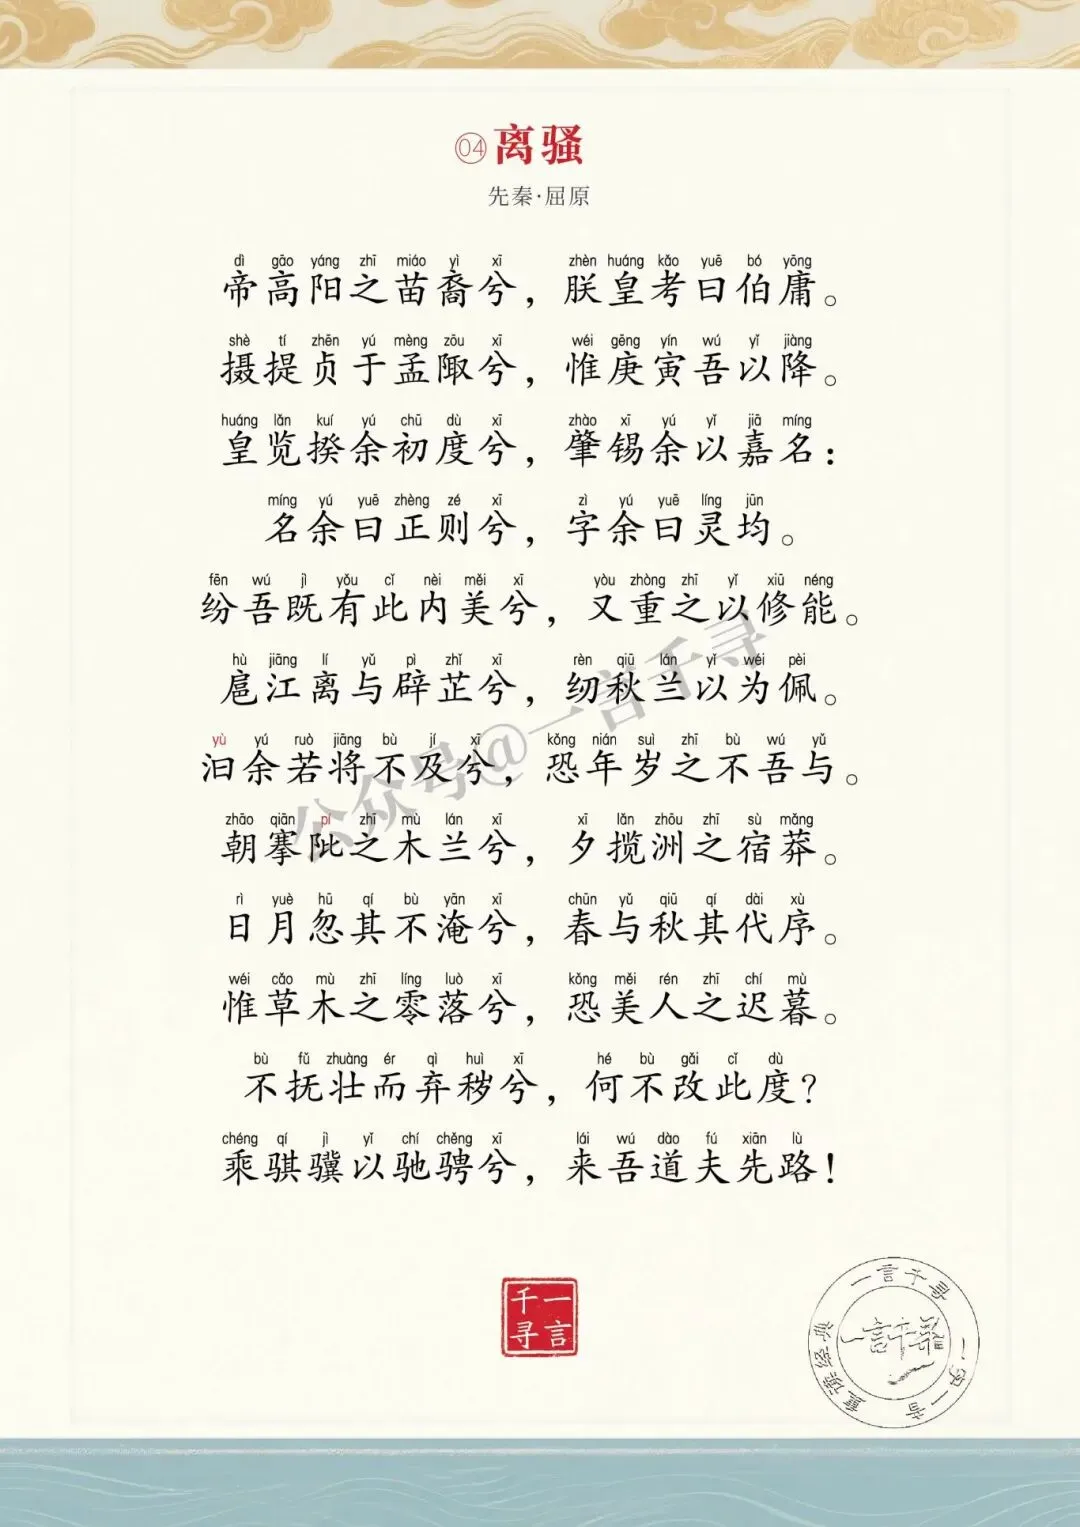 04 离骚
先秦·屈原
dì gāo yáng zhī miáo yì xī zhèn huáng kǎo yuē bó yōng
帝高阳之苗裔兮，朕皇考曰伯庸。
shè tí zhēn yú mèng zōu xī wéi gēng yín wú yǐ jiàng
摄提贞于孟陬兮，惟庚寅吾以降。
huáng lǎn kuí yú chū dù xī zhào xī yú yǐ jiā míng
皇览揆余初度兮，肇锡余以嘉名：
míng yú yuē zhèng zé xī zì yú yuē líng jūn
名余曰正则兮，字余曰灵均。
fēn wú jì yǒu cǐ nèi měi xī yòu zhòng zhī yǐ xiū néng
纷吾既有此内美兮，又重之以修能。
hù jiāng lí yǔ pì zhǐ xī rèn qiū lán yǐ wéi pèi
扈江离与辟芷兮，纫秋兰以为佩。
yù yú ruò jiāng bù jí xī kǒng nián suì zhī bù wú yǔ
汩余若将不及兮，恐年岁之不吾与。
zhāo qiān pí zhī mù lán xī xī lǎn zhōu zhī sù mǎng
朝搴阰之木兰兮，夕揽洲之宿莽。
rì yuè hū qí bù yān xī chūn yǔ qiū qí dài xù
日月忽其不淹兮，春与秋其代序。
wéi cǎo mù zhī líng luò xī kǒng měi rén zhī chí mù
惟草木之零落兮，恐美人之迟暮。
bù fǔ zhuàng ér qì huì xī hé bù gǎi cǐ dù
不抚壮而弃秽兮，何不改此度？
chéng qí jì yǐ chí chěng xī lái wú dào fú xiān lù
乘骐骥以驰骋兮，来吾道夫先路！
公众号@一言千寻
一言千寻
一言千寻
一字一音
重读经典
一言千寻